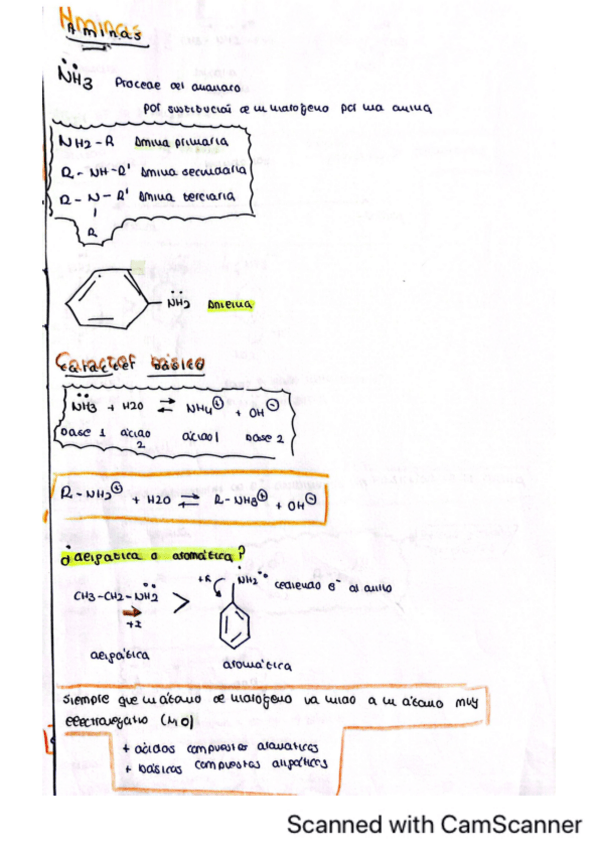 Aminas
NH3 Procede del amoniaco
por sustitución de un hidrógeno por una amina
NH2-R Amina primaria
R-NH-R' Amina secundaria
R-N-R' Amina terciaria
R
NH2 Anilina
Carácter básico
NH3 + H2O ⇌ NH4⊕ + OH⊖
base 1 ácido 2 ácido 1 base 2
R-NH2⊕ + H2O ⇌ R-NH3⊕ + OH⊖
¿alifática o aromática?
CH3-CH2-NH2 > +R NH2 cediendo e⁻ al anillo
+I
alifática
aromática
siempre que un átomo de hidrógeno va unido a un átomo muy
electronegativo (N, O)
+ ácidos compuestos aromáticos
+ básicos compuestos alifáticos
Scanned with CamScanner